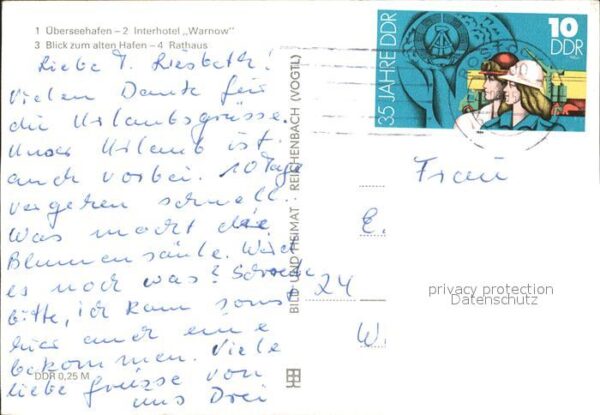 1 Überseehafen – 2 Interhotel „Warnow"
3 Blick zum alten Hafen – 4 Rathaus
Liebe T. Liesbeth!
Vielen Dank für
die Urlaubsgrüsse.
Unser Urlaub ist
auch vorbei. 10 Tage
vergehen schnell.
Was macht die
Blumensäule. Wird
es noch was? Schreib
bitte, ich kann sonst
hier auch eine
bekommen. Viele
liebe Grüsse von
uns Drei
DDR 0,25 M
BILD UND HEIMAT · REICHENBACH (VOGTL)
35 JAHRE DDR
10
DDR
Frau
E.
24
W.
privacy protection
Datenschutz